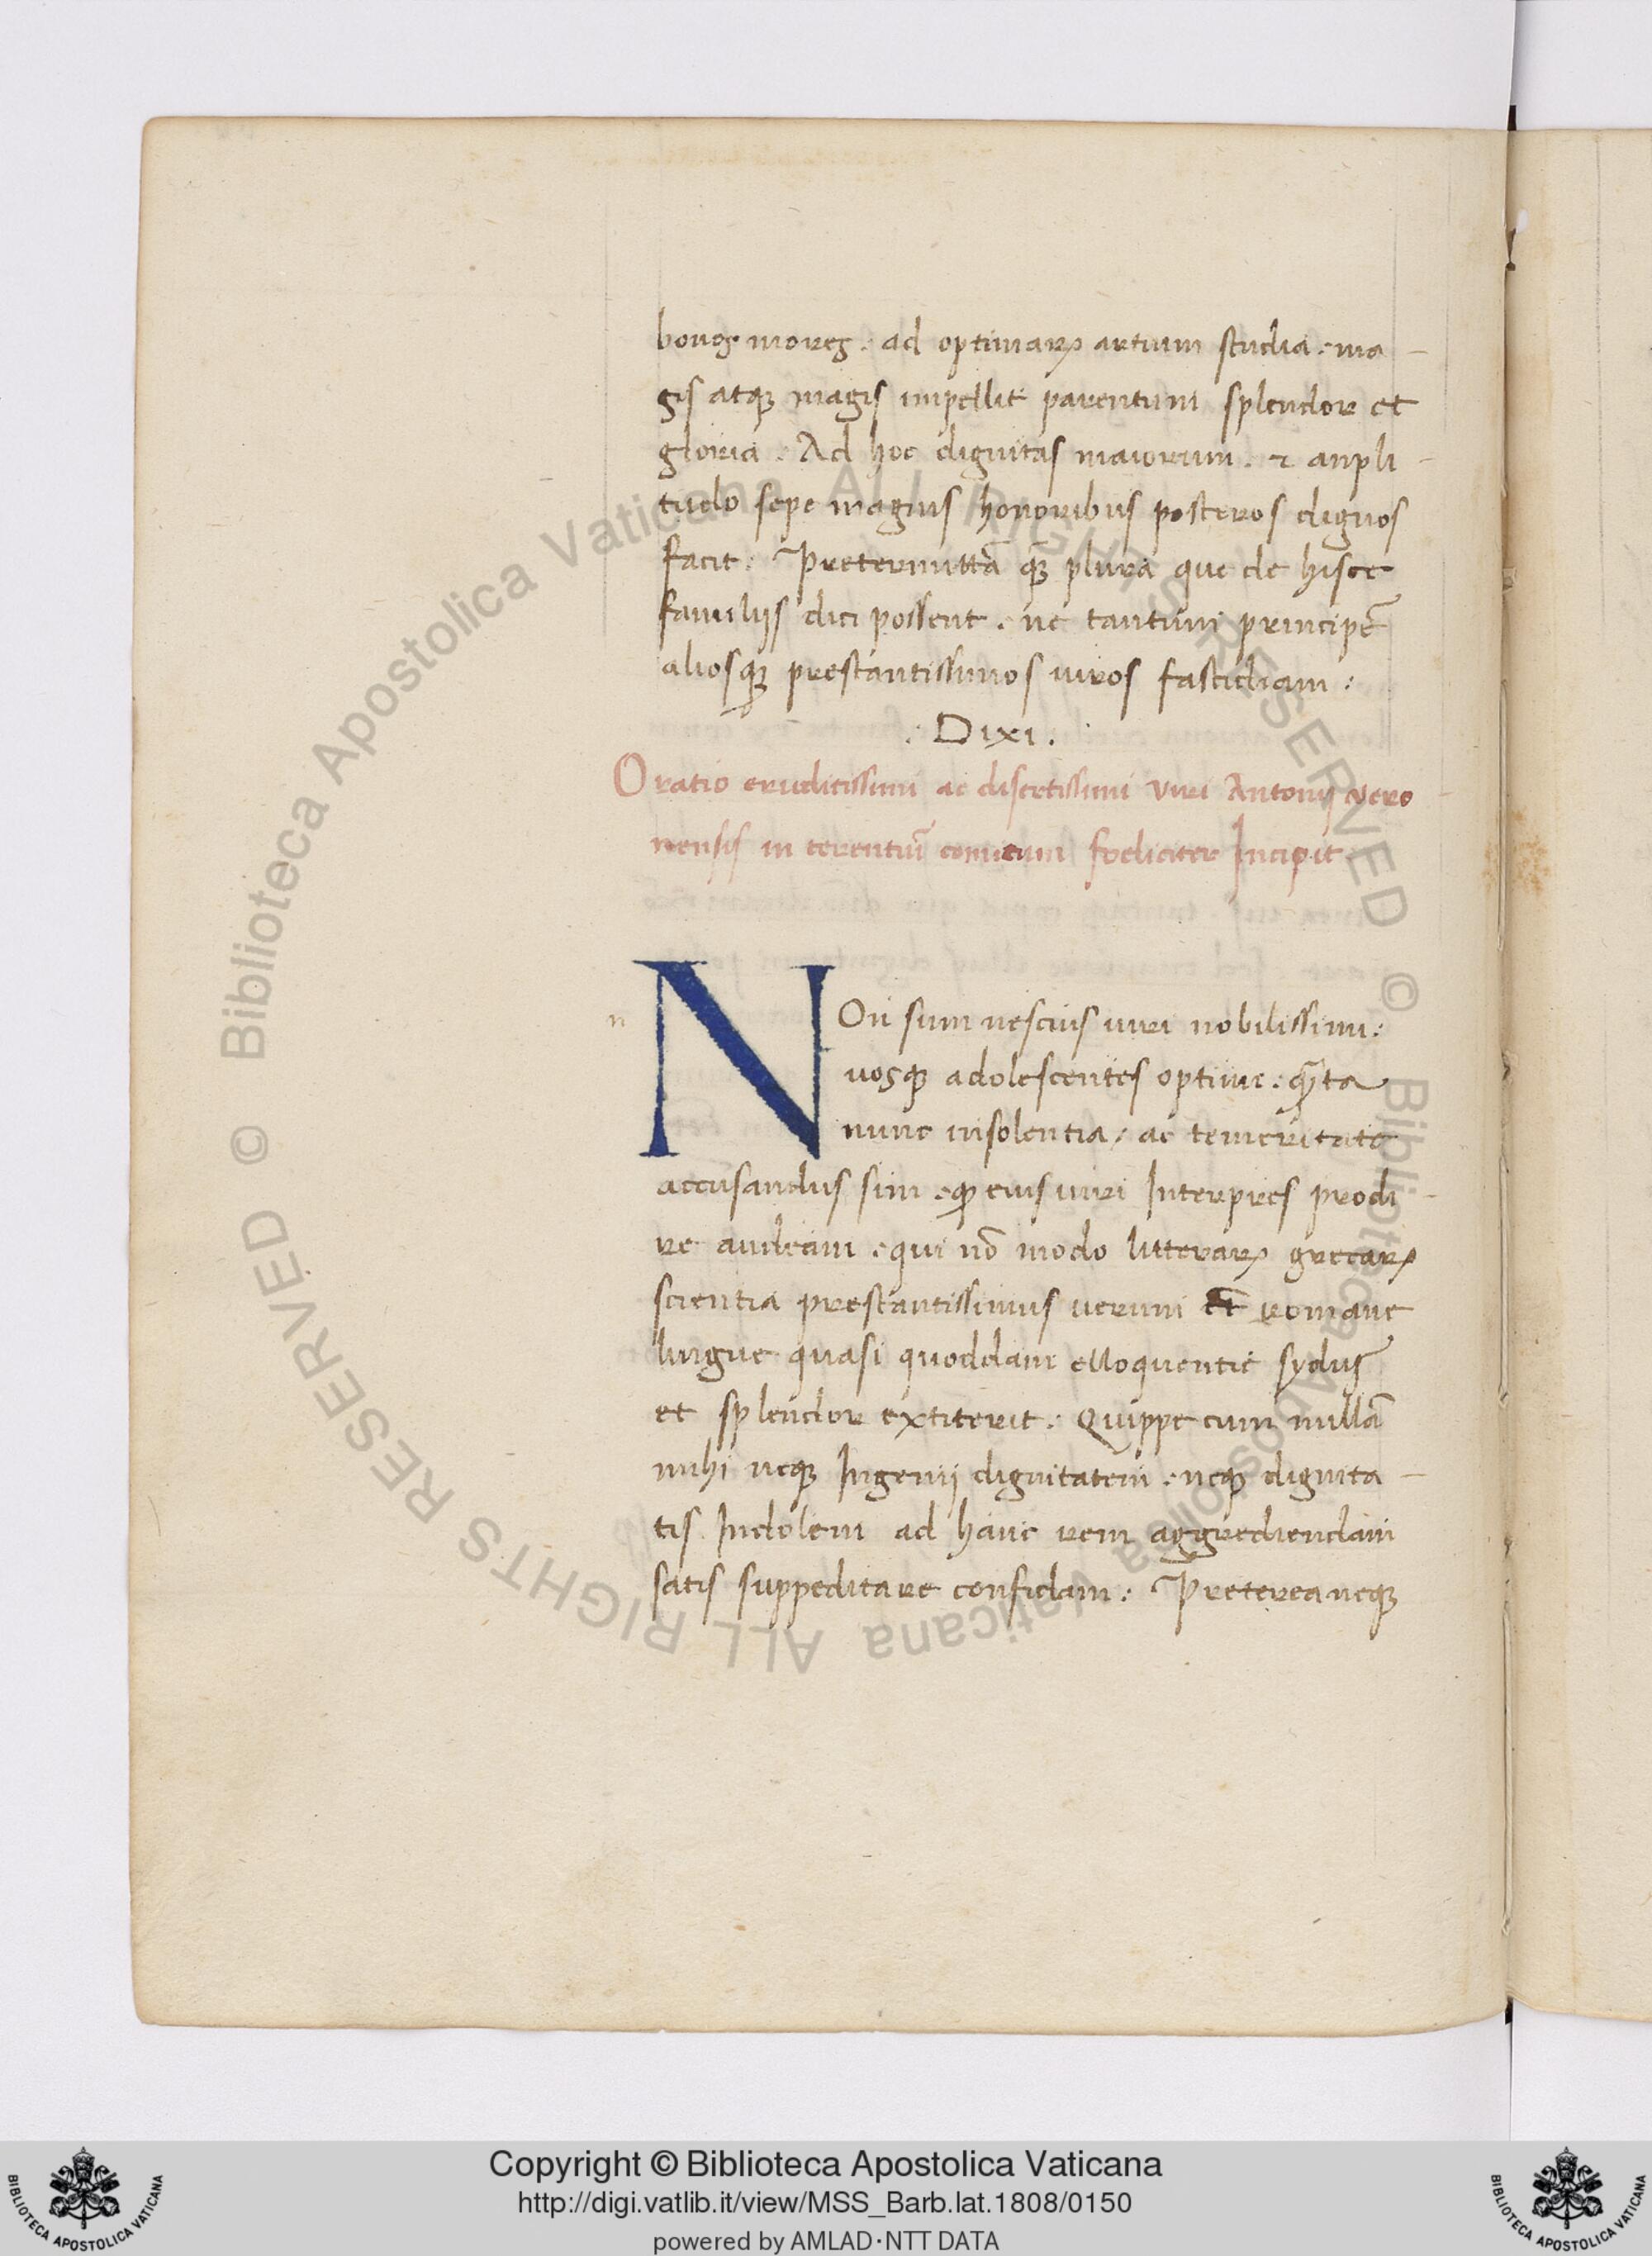 bonos mores. ad optimaꝝ artium studia. ma-
gis atqꝫ magis impellit parentum splendor et
gloria. Ad hoc dignitas maiorum. ⁊ anpli-
tudo sepe magnis honoribus posteros dignos
facit. Pretermittā qꝫ plura que de hisce
familijs dici possent. ne tantum principē
aliosqꝫ prestantissimos uiros fastidiam:
. Dixi .
Oratio eruditissimi ac disertissimi viri Antonij vero-
nensis in terentiū comicum foeliciter Incipit
n
NOn sum nescius uiri nobilissimi:
uosqꝫ adolescentes optimi. quāta
nunc insolentia, ac temeritate
accusandus sim. qꝫ eius uiri Interpres prodi-
re audeam. qui nō modo litteraꝝ grecaꝝ
scientia prestantissimus uerum et romane
lingue quasi quoddam elloquentie sydus
et splendor extiterit. Quippe cum nullā
mihi neqꝫ Ingenij dignitatem. neqꝫ dignita-
tis Indolem ad hanc rem aggrediendam
satis suppeditare confidam: Preterea neqꝫ
© Biblioteca Apostolica Vaticana ALL RIGHTS RESERVED © Biblioteca Apostolica Vaticana ALL RIGHTS RESERVED
Copyright © Biblioteca Apostolica Vaticana
http://digi.vatlib.it/view/MSS_Barb.lat.1808/0150
powered by AMLAD·NTT DATA
BIBLIOTECA APOSTOLICA VATICANA
BIBLIOTECA APOSTOLICA VATICANA